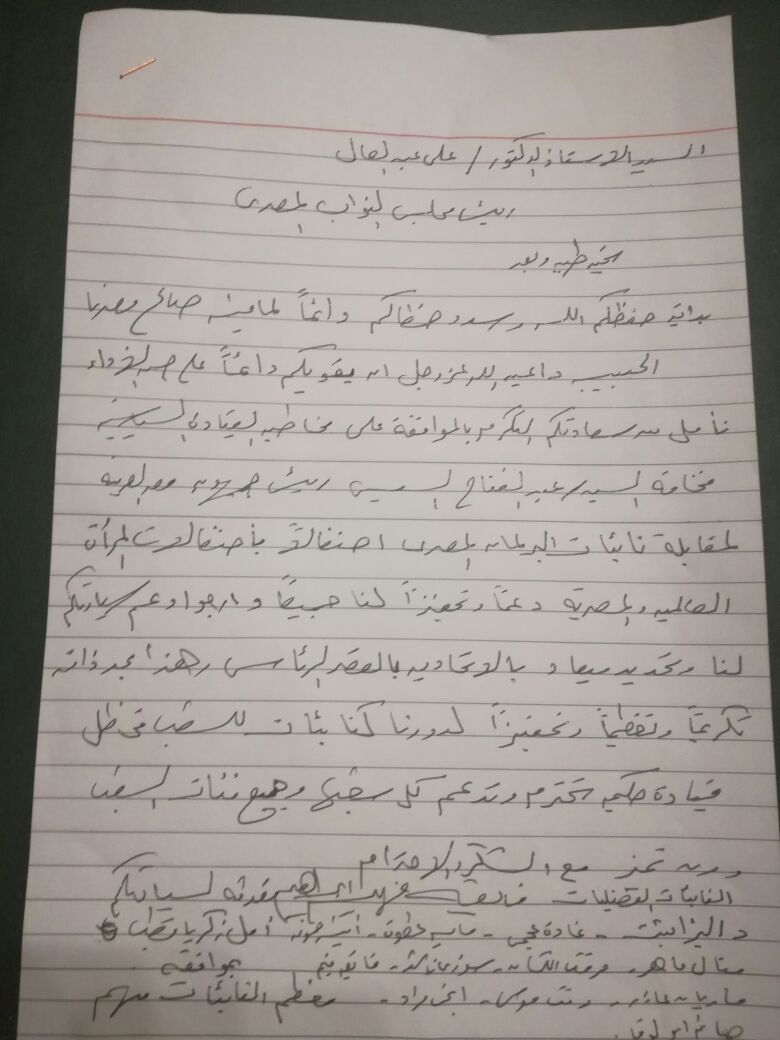 السيد الاستاذ الدكتور / على عبد العال
رئيس مجلس النواب المصرى
تحيه طيبه وبعد
بداية حفظكم الله وسدد خطاكم دائماً لما فيه صالح مصرنا
الحبيب داعيه الله عز وجل ان يقويكم دائماً على
نأمل من سعادتكم التكرم بالموافقة على مخاطبه القيادة السياسية
فخامة السيد / عبد الفتاح السيسى رئيس جمهورية مصر العربية
لمقابلة نائبات البرلمان المصرى احتفالاً بأحتفالات المرأة
العالميه والمصرية دعماً وتحفيزاً لنا جميعاً وارجوا دعم سيادتكم
لنا وتحديد ميعاد بالاتحاديه بالقصر الرئاسى وهذا بحد ذاته
تكريماً وتعظيماً وتحفيزاً لدورنا كنائبات للشعب فى ظل
قيادة حكيمه تحترم وتدعم كل شعبها وجميع فئات الشعب
مع الشكر والاحترام
النائبات الفضليات مقدمته لسيادتكم
د اليزابيث - غادة عجمى - - - امل زكريا قطب
منال ماهر - مرفت - - بموافقه
ماريان - - معظم النائبات منهم